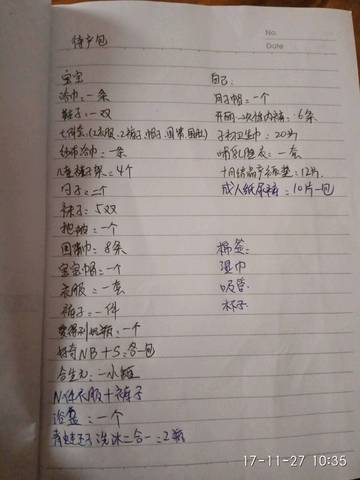 No.
Date
待产包
宝宝
浴巾:一条
鞋子:一双
七件套(2衣服、2裤子、帽子、围兜、围肚)
纱布浴巾:一条
儿童裤子架:4个
勺子:二个
袜子:5双
抱被:一个
围嘴巾:8条
宝宝帽:一个
衣服:一套
裤子:一件
爱得利奶瓶:一个
好奇NB+S:各一包
合生元:一小罐
N件衣服+裤子
浴盆:一个
青蛙王子洗沐二合一:2瓶
自己:
月子帽:一个
开丽一次性内裤:6条
子初卫生巾:20片
哺乳睡衣:一套
十月结晶产褥垫:12片
成人纸尿裤:10片一包
棉签:
湿巾
吸管
杯子
17-11-27 10:35